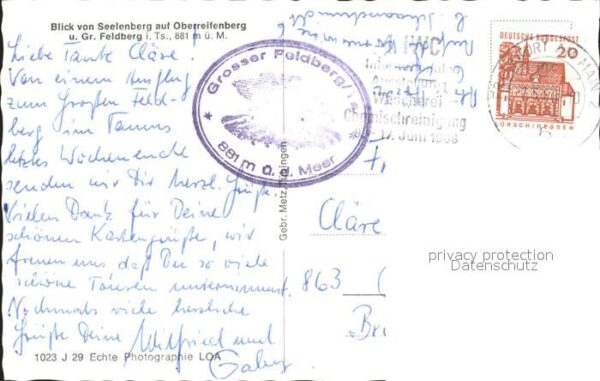 Blick von Seelenberg auf Oberreifenberg
u. Gr. Feldberg i. Ts., 881 m ü. M.
Liebe Tante Cläre.
Von einem Ausflug
zum Großen Feld-
berg im Taunus
letztes Wochenende
senden wir Dir herzl. Grüße.
Vielen Dank für Deine
schönen Kartengrüße, wir
freuen uns daß Du so viele
schöne Touren unternimmst.
Nochmals viele herzliche
Grüße Deine Wilfried und
Gaby
1023 J 29 Echte Photographie LOA
Grosser Feldberg/Ts.
881 m ü. d. Meer
Gebr. Metz, Tübingen
Wäscherei
Chemischreinigung
17. Juni 1968
DEUTSCHE BUNDESPOST
20
LORSCH/HESSEN
Cläre
863
privacy protection
Datenschutz